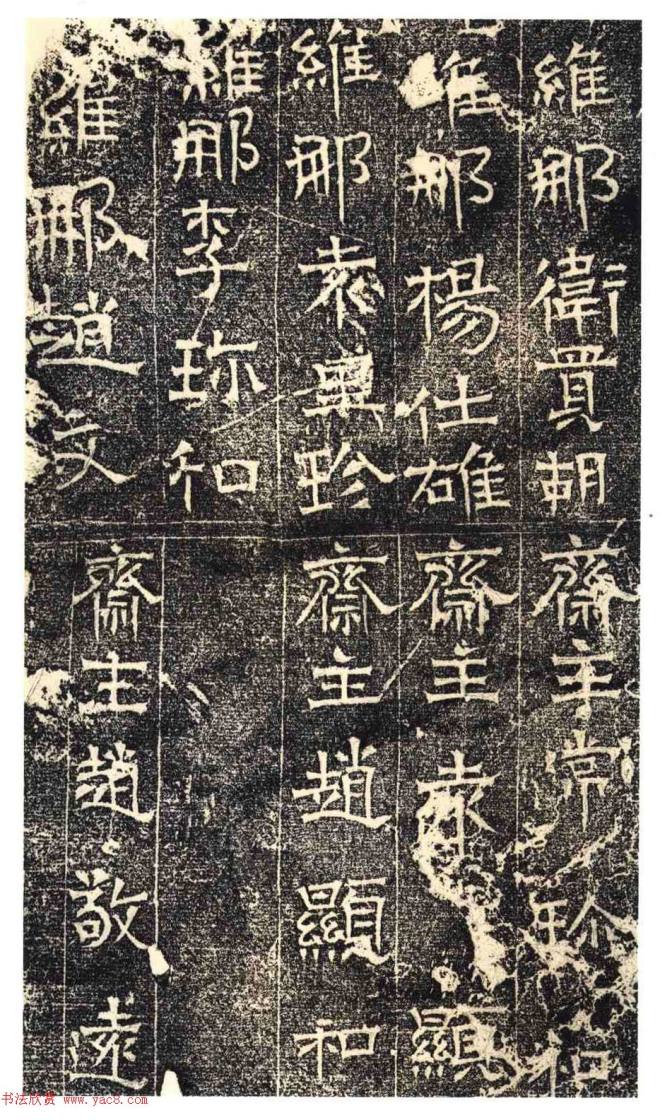 維那衛貫胡
維那楊仕雄
維那袁珍
維那李珎和
維那趙文
齋主常珎和
齋主袁顯
齋主趙顯和
齋主趙敬遠
书法欣赏 www.yac8.com